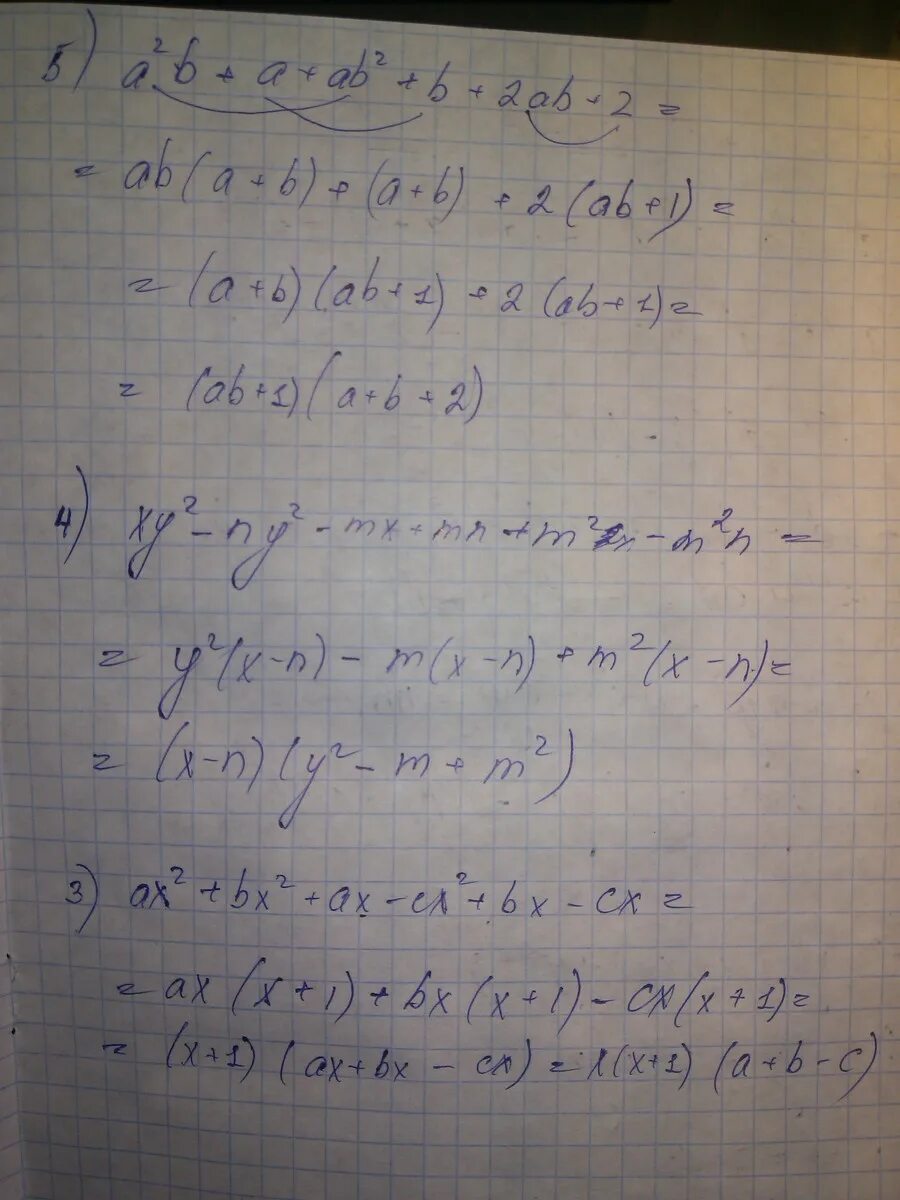 5) a²b + a + ab² + b + 2ab + 2 =
= ab(a + b) + (a + b) + 2(ab + 1) =
= (a + b)(ab + 1) + 2(ab + 1) =
= (ab + 1)(a + b + 2)
4) xy² - ny² - mx + mn + m²x - m²n =
= y²(x - n) - m(x - n) + m²(x - n) =
= (x - n)(y² - m + m²)
3) ax² + bx² + ax - cx² + bx - cx =
= ax(x + 1) + bx(x + 1) - cx(x + 1) =
= (x + 1)(ax + bx - cx) = x(x + 1)(a + b - c)